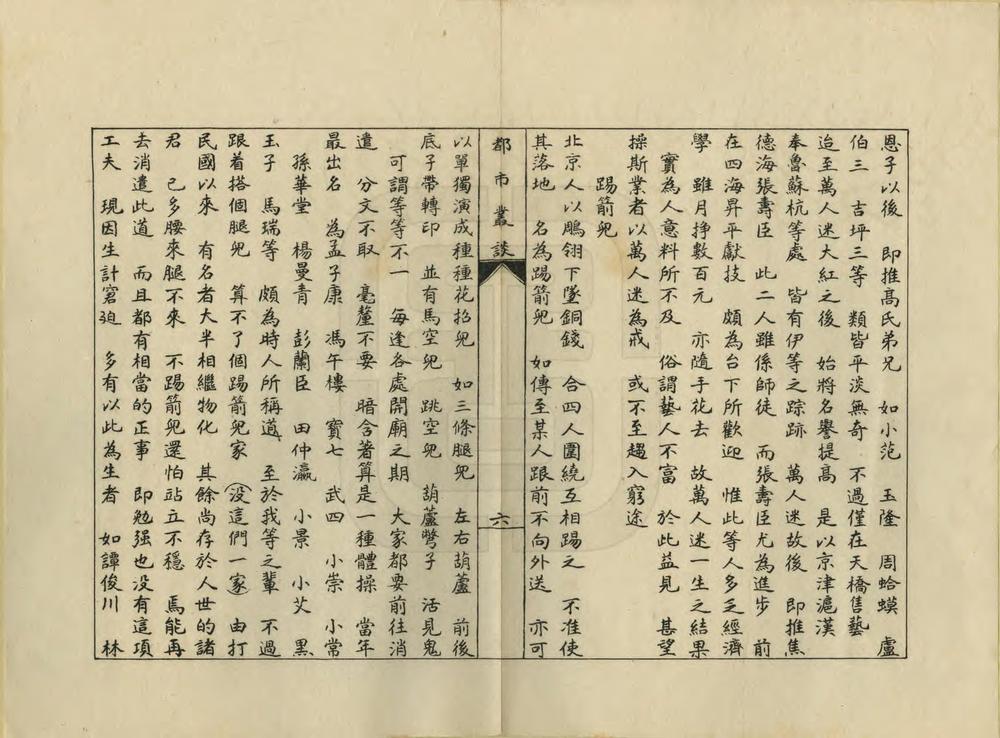 恩子以後　即推髙氏弟兄　如小范　玉隆　周蛤蟆　盧
伯三　吉坪三等　類皆平淡無奇　不過僅在天橋售藝
迨至萬人迷大紅之後　始將名譽提髙　是以京津滬漢
奉魯蘇杭等處　皆有伊等之踪跡　萬人迷故後　即推焦
德海張壽臣　此二人雖係師徒　而張壽臣尤為進步　前
在四海昇平獻技　頗為台下所歡迎　惟此等人多乏經濟
學　雖月掙數百元　亦隨手花去　故萬人迷一生之結果
實為人意料所不及　俗謂藝人不富　於此益見　甚望
操斯業者以萬人迷為戒　或不至趨入窮途
踢箭兒
北京人以鵰翎下墜銅錢　合四人圍繞互相踢之　不准使
其落地　名為踢箭兒　如傳至某人跟前不向外送　亦可
都市叢談
六
以單獨演成種種花招兒　如三條腿兒　左右葫蘆　前後
底子帶轉印　並有馬空兒　跳空兒　葫蘆彆子　活見鬼
可謂等等不一　每逢各處開廟之期　大家都要前往消
遣　分文不取　毫釐不要　暗含著算是一種體操　當年
最出名　為孟子康　馮午樓　寶七　武四　小崇　小常
孫華堂　楊曼青　彭蘭臣　田仲瀛　小景　小艾　黑
玉子　馬瑞等　頗為時人所稱道　至於我等之輩　不過
跟着搭個腿兒　算不了個踢箭兒家（没這們一家）由打
民國以來　有名者大半相繼物化　其餘尚存於人世的諸
君　已多腰來腿不來　不踢箭兒還怕站立不穩　焉能再
去消遣此道　而且都有相當的正事　即勉强也没有這項
工夫　現因生計窘迫　多有以此為生者　如譚俊川　林